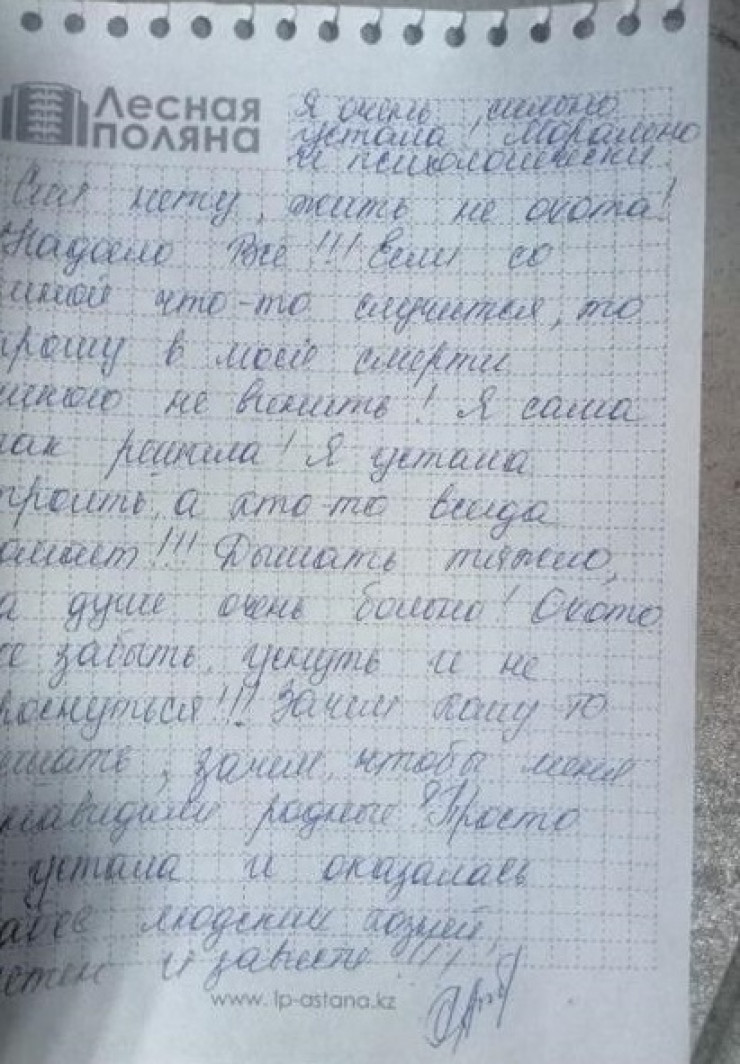 Лесная
поляна
Я очень сильно
устала! Морально
и психологически.
Сил нету, жить не охота!
Надоело Всё!!! Если со
мной что-то случится, то
прошу в моей смерти
никого не винить! Я сама
так решила! Я устала
троить, а кто-то всегда
омает!!! Дышать тяжело,
а душе очень больно! Охото
се забыть, уснуть и не
роснуться!!! Зачем кому то
ешать, зачем, чтобы меня
навидели родные? Просто
устала и оказалась
абее людских козней,
летен и зависте!!!
www.lp-astana.kz